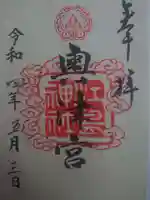 奉拝
奥津宮
江島
神社
令和四年五月三日